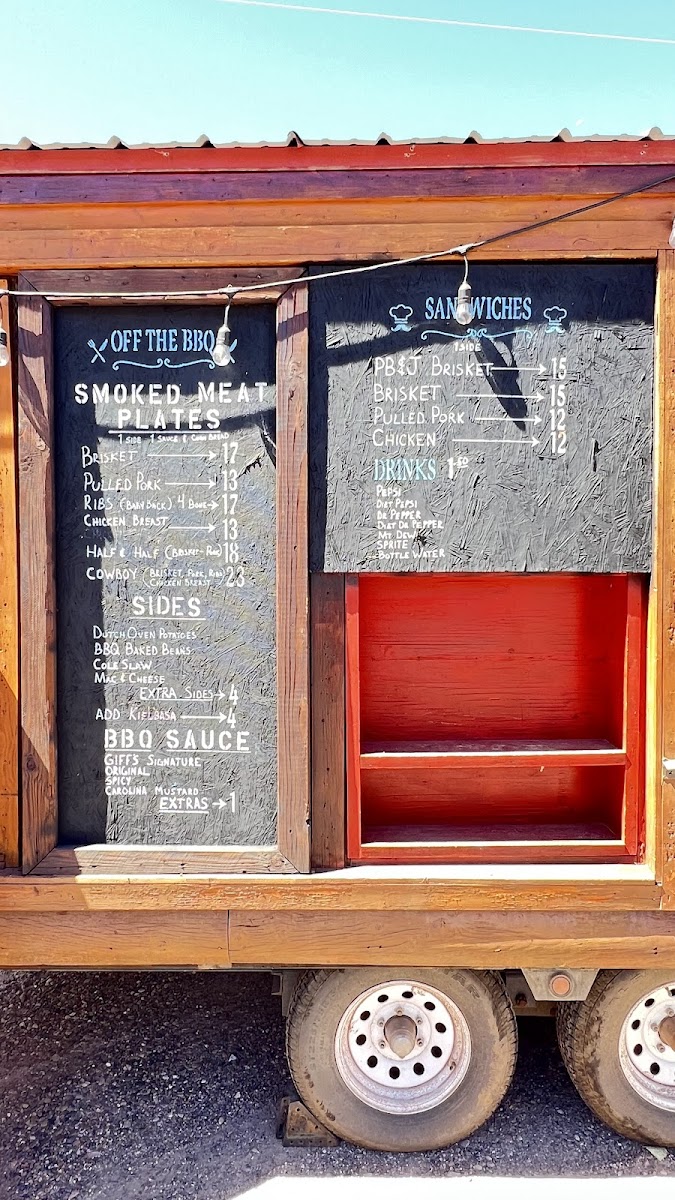 OFF THE BBQ
SMOKED MEAT
PLATES
1 SIDE 1 SAUCE & CORN BREAD
BRISKET 17
PULLED PORK 13
RIBS (BABY BACK) 4 BONE 17
CHICKEN BREAST 13
HALF & HALF (BRISKET-PORK) 18
COWBOY (BRISKET, PORK, RIBS, 23
CHICKEN BREAST
SIDES
DUTCH OVEN POTATOES
BBQ BAKED BEANS
COLE SLAW
MAC & CHEESE
EXTRA SIDES 4
ADD KIELBASA 4
BBQ SAUCE
GIFF'S SIGNATURE
ORIGINAL
SPICY
CAROLINA MUSTARD
EXTRAS 1
SANDWICHES
1 SIDE
PB&J BRISKET 15
BRISKET 15
PULLED PORK 12
CHICKEN 12
DRINKS 1.50
PEPSI
DIET PEPSI
DR PEPPER
DIET DR PEPPER
MT DEW
SPRITE
BOTTLE WATER